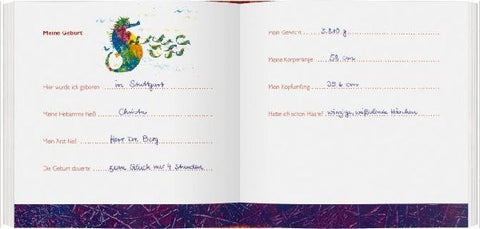 Meine Geburt
Hier wurde ich geboren in Stuttgart
Meine Hebamme hieß Christa
Mein Arzt hieß Herr Dr. Berg
Die Geburt dauerte zum Glück nur 4 Stunden
Mein Gewicht 3.820 g
Meine Körperlänge 58 cm
Mein Kopfumfang 35,6 cm
Hatte ich schon Haare? winzige, weißblonde Härchen